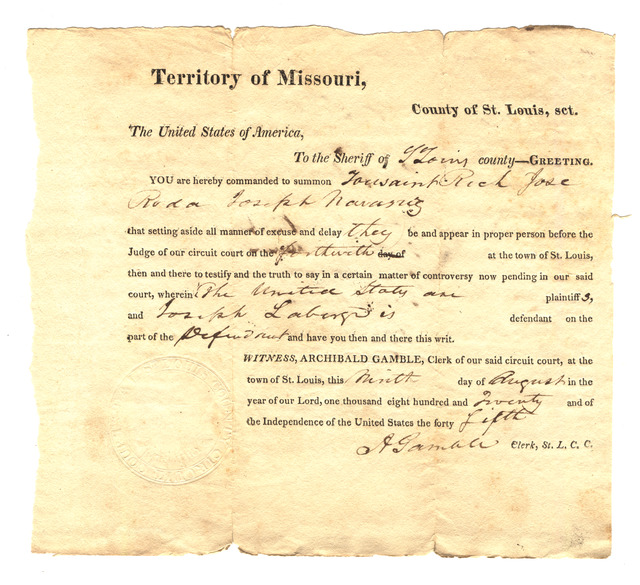 Territory of Missouri,
County of St. Louis, sct.
The United States of America,
To the Sheriff of St Louis county—GREETING.
YOU are hereby commanded to summon Toussaint Rich Jose
Roda Joseph Navarry
that setting aside all manner of excuse and delay they be and appear in proper person before the
Judge of our circuit court on the forthwith day of at the town of St. Louis,
then and there to testify and the truth to say in a certain matter of controversy now pending in our said
court, wherein The United States are plaintiff s,
and Joseph Laberge is defendant on the
part of the Defendant and have you then and there this writ.
WITNESS, ARCHIBALD GAMBLE, Clerk of our said circuit court, at the
town of St. Louis, this Ninth day of August in the
year of our Lord, one thousand eight hundred and Twenty and of
the Independence of the United States the forty fifth
A Gamble Clerk, St. L. C. C.